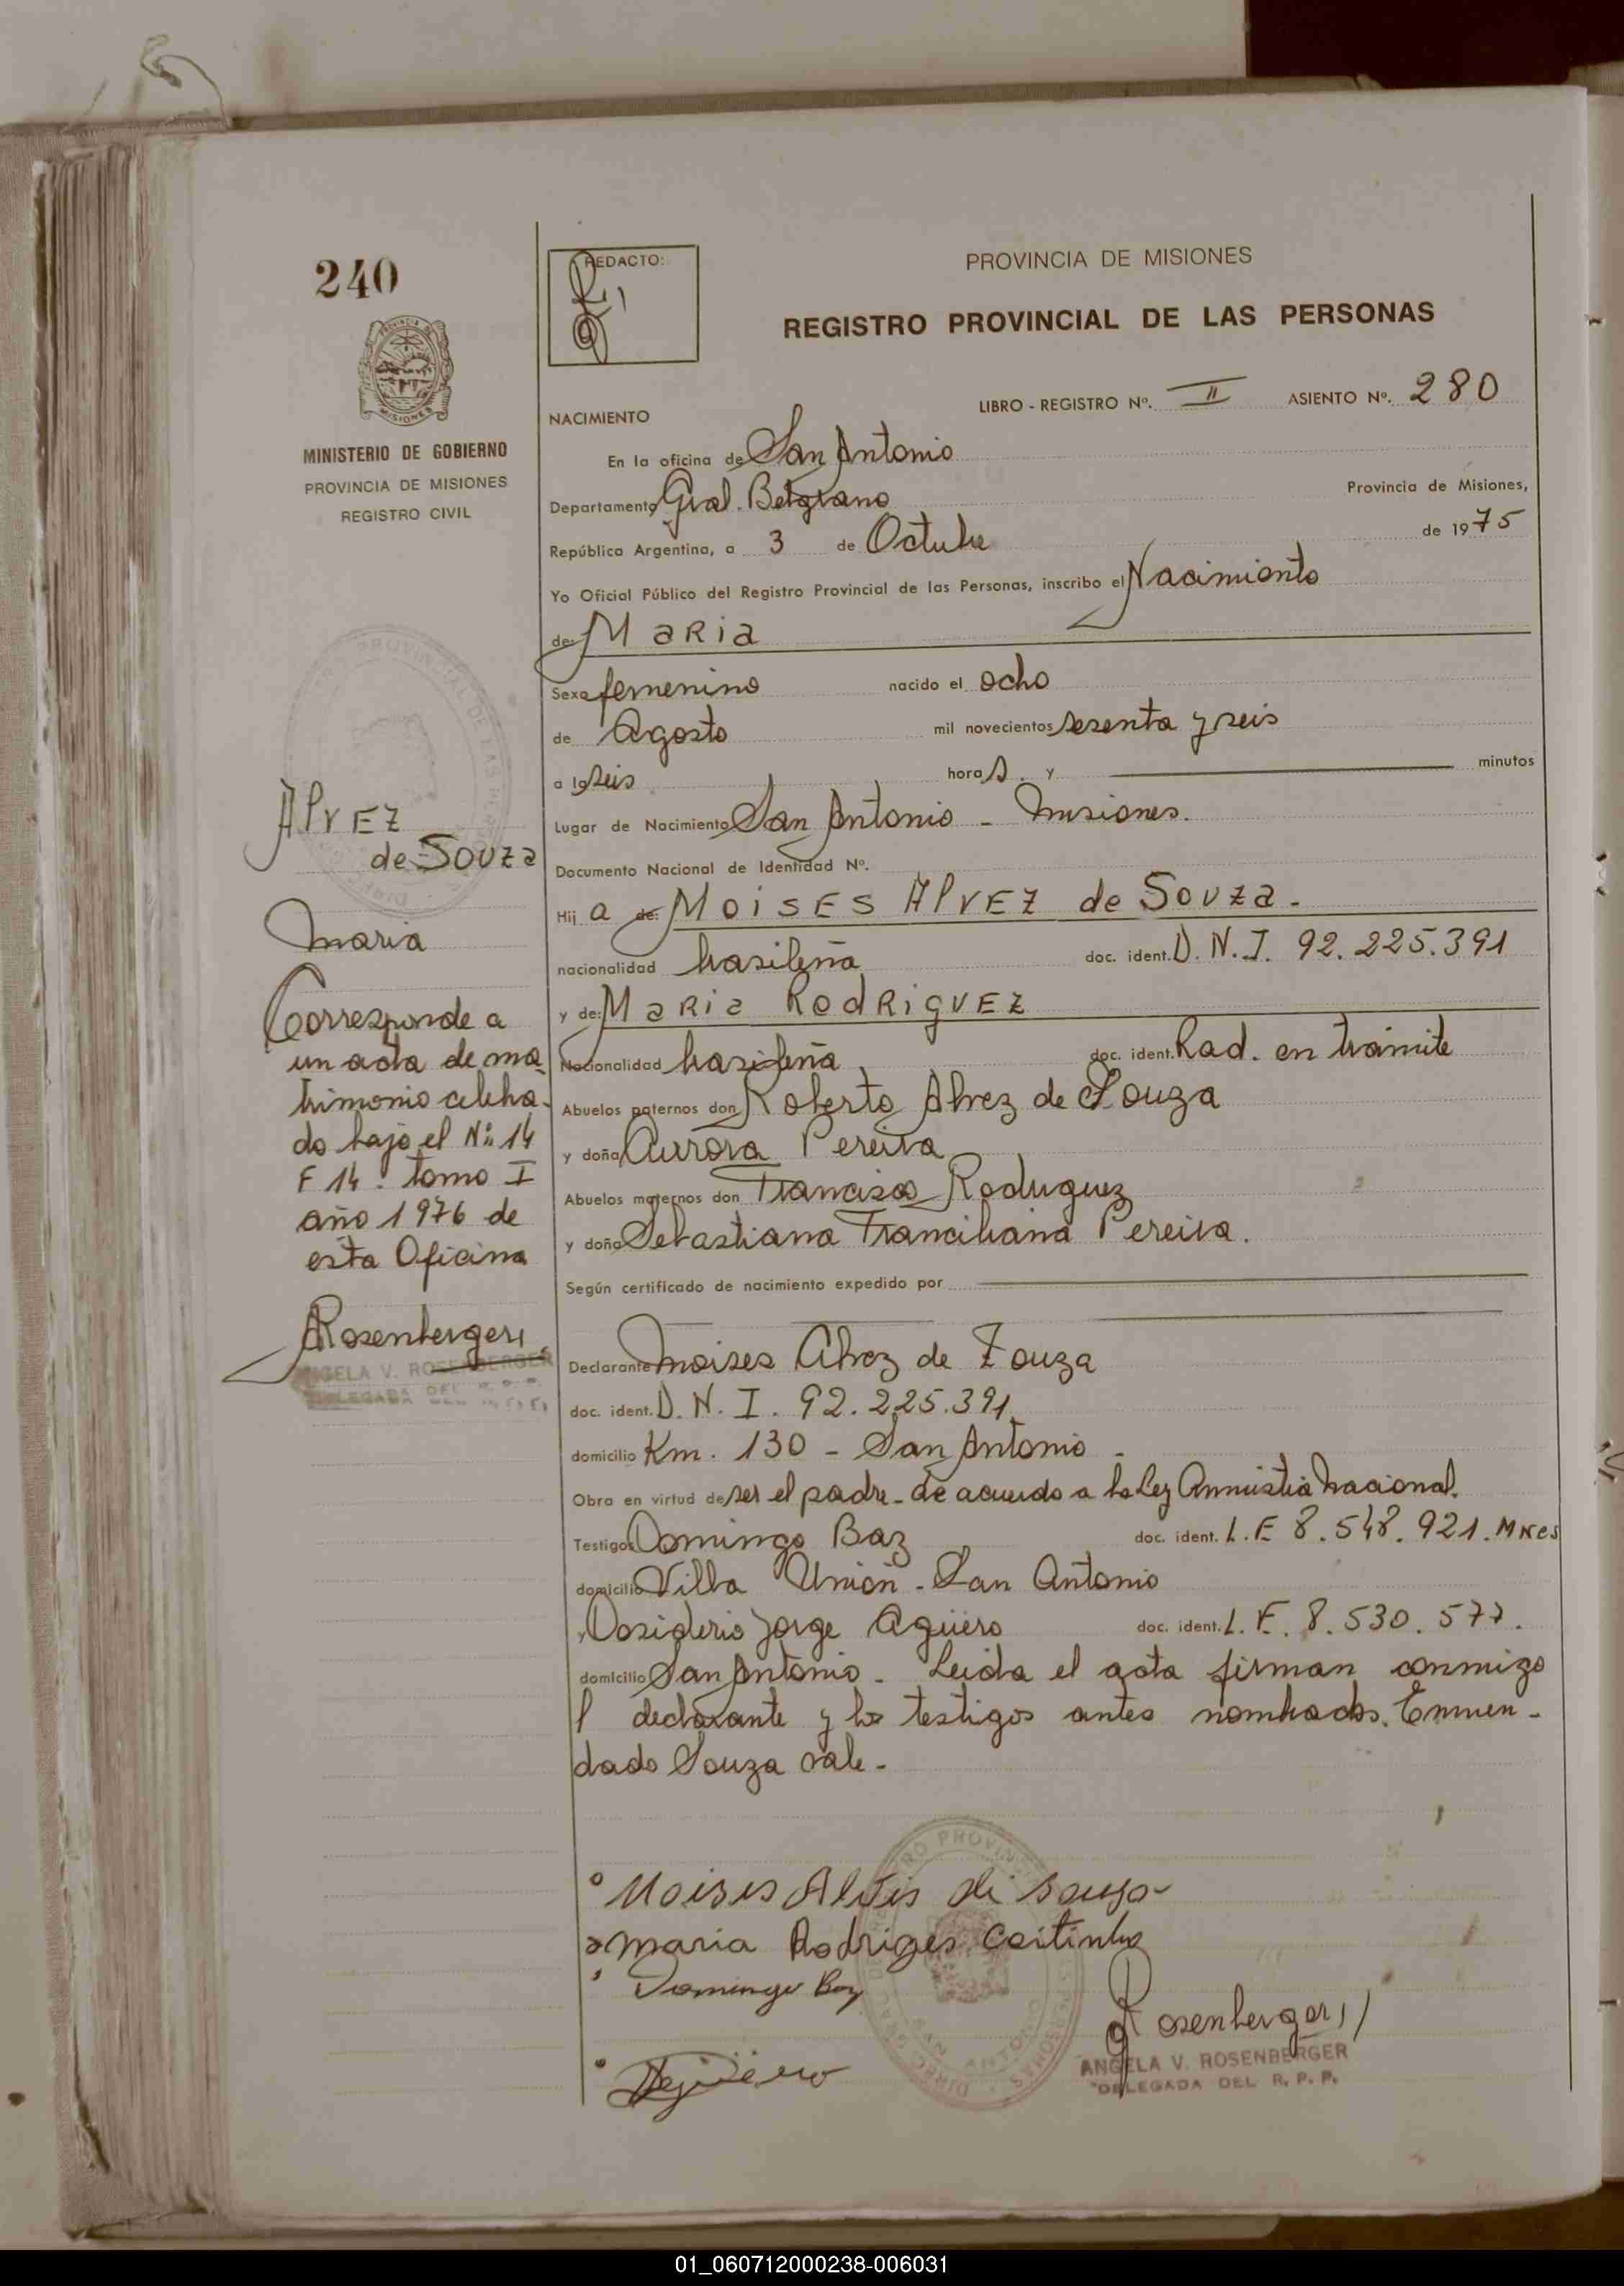 240
REDACTO:
PROVINCIA DE MISIONES
REGISTRO PROVINCIAL DE LAS PERSONAS
MINISTERIO DE GOBIERNO
PROVINCIA DE MISIONES
REGISTRO CIVIL
LIBRO - REGISTRO Nº. II ASIENTO Nº. 280
NACIMIENTO
En la oficina de San Antonio
Departamento Gral. Belgrano Provincia de Misiones,
República Argentina, a 3 de Octubre de 1975
Yo Oficial Público del Registro Provincial de las Personas, inscribo el Nacimiento
de: MARIA
Sexo femenino nacido el ocho
de Agosto mil novecientos sesenta y seis
a la seis horas. y minutos
Lugar de Nacimiento San Antonio - Misiones.
Documento Nacional de Identidad Nº.
Hij a de: MOISES ALVEZ de SOUZA.-
nacionalidad brasileña doc. ident. D.N.I. 92.225.391
y de: MARIA RODRIGUEZ
Nacionalidad brasileña doc. ident. Rad. en trámite
Abuelos paternos don Roberto Alvez de Souza
y doña Aurora Pereira
Abuelos maternos don Francisco Rodriguez
y doña Sebastiana Franciliana Pereira.
Según certificado de nacimiento expedido por
Declarante Moises Alvez de Zouza
doc. ident. D.N.I. 92.225.391
domicilio Km. 130 - San Antonio -
Obra en virtud de ser el padre - de acuerdo a la Ley Amnistia Nacional.
Testigos Domingo Baz doc. ident. L.E 8.548.921. MNES
domicilio Villa Unión - San Antonio
y Desiderio Jorge Agüero doc. ident. L.E. 8.530.577.
domicilio San Antonio. Leida el acta firman conmigo
l declarante y los testigos antes nombrados. Enmen-
dado Souza vale.-
ALVEZ
de SOUZA
Maria
Corresponde a
un acta de ma-
trimonio celebra-
do bajo el Nº 14
F 14. tomo I
año 1976 de
esta Oficina
Rosenberger
ANGELA V. ROSENBERGER
DELEGADA DEL
Moises Alves di Souza
Maria Rodriges Coitinho
Domingo Baz
Agüero
Rosenberger
ANGELA V. ROSENBERGER
DELEGADA DEL R. P. P.
01_060712000238-006031